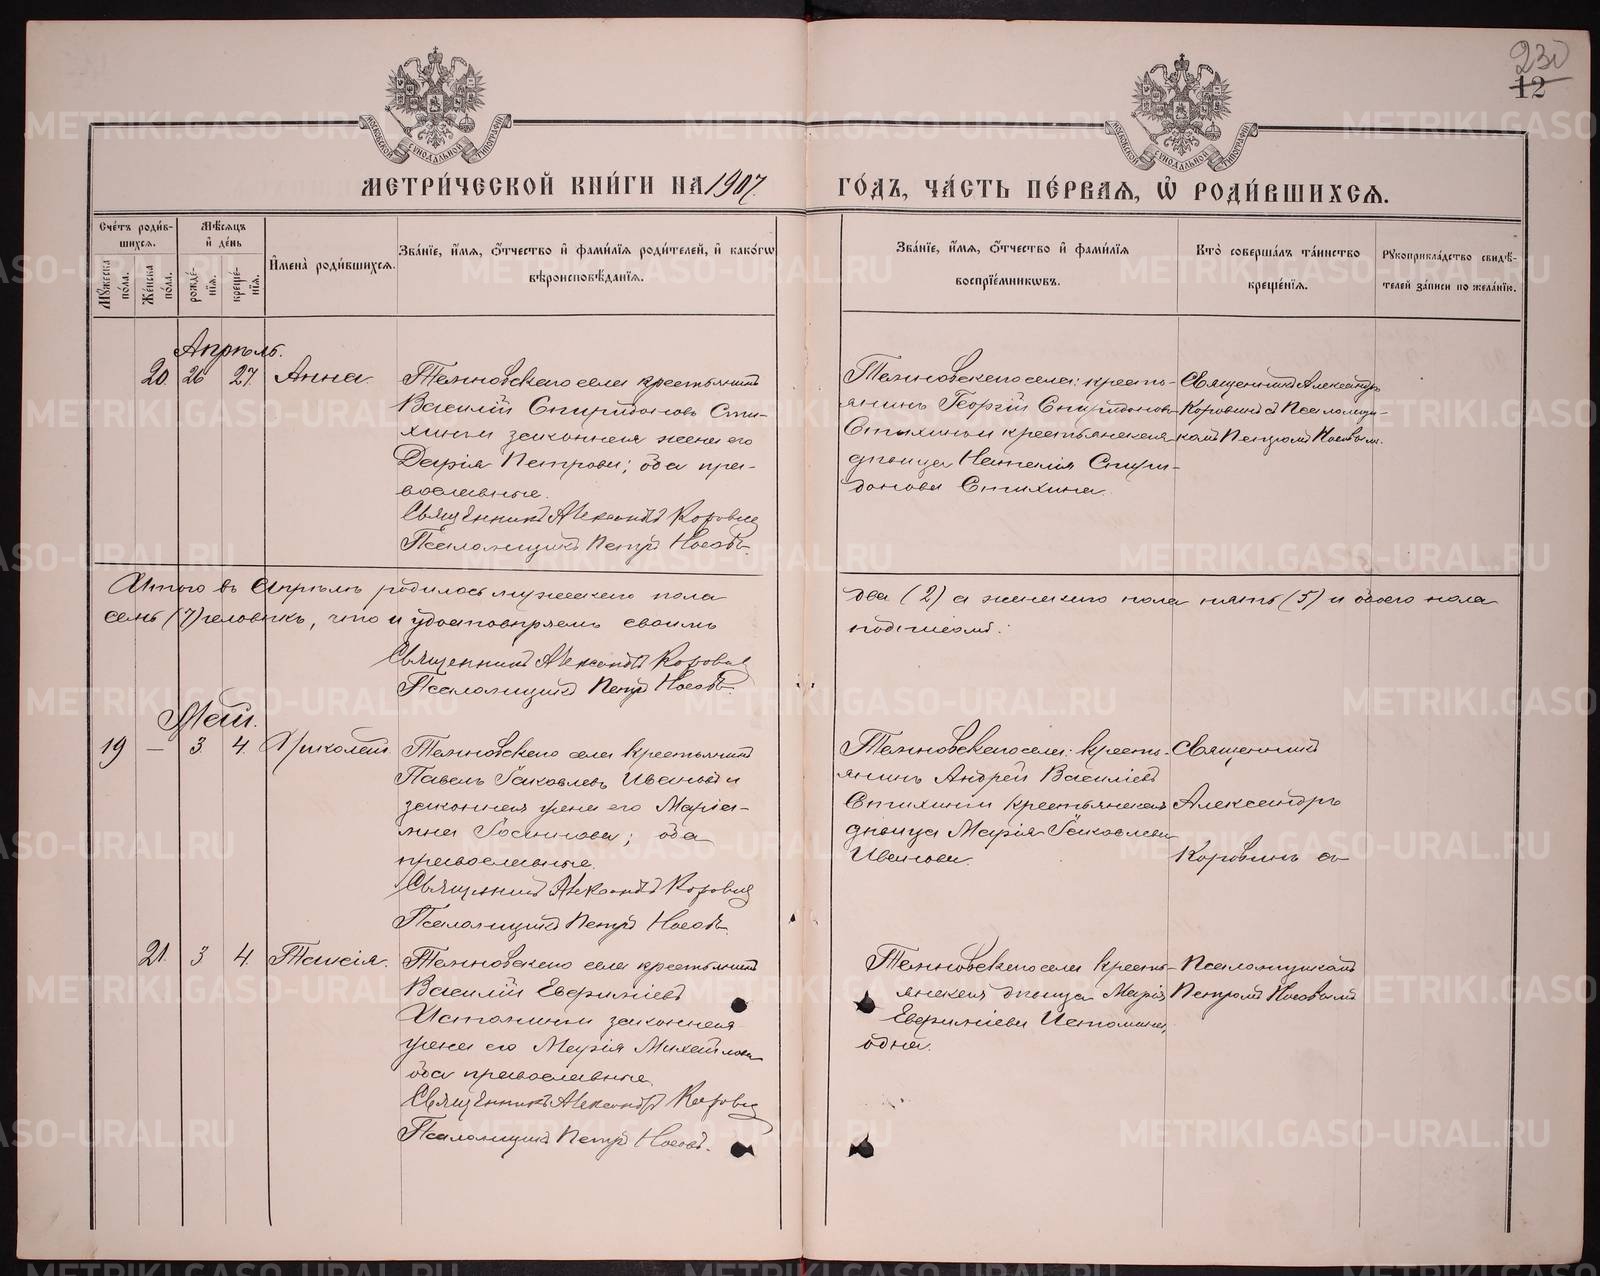 230
12
МОСКОВСКОЙ СѴНОДАЛЬНОЙ ТИПОГРАФІИ
МОСКОВСКОЙ СѴНОДАЛЬНОЙ ТИПОГРАФІИ
МЕТРИ́ЧЕСКОЙ КНИ́ГИ НА 1907
ГО́ДЪ, ЧА́СТЬ ПЕ́РВАЯ, Ѡ҆ РОДИ́ВШИХСЯ.
Сче́тъ роди́вшихся.
Мѣ́сяцъ и҆ де́нь
Му́жеска по́ла.
Же́нска по́ла.
рожде́нїѧ.
креще́нїѧ.
И҆мена̀ роди́вшихся.
Зва́нїе, и҆́мя, ѻ҆́тчество и҆ фами́лїя роди́телей, и҆ како́гѡ
вѣроисповѣ́данїя.
Зва́нїе, и҆́мя, ѻ҆́тчество и҆ фами́лїя
воспрїе́мникѡвъ.
Кто̀ соверша́лъ та́инство
креще́нїя.
Рꙋкоприкла́дство свидѣ́-
телей за́писи по жела́нїю.
Апрѣль.
20. 26 27. Анна.
Темновскаго села крестьянинъ
Василій Спиридоновъ Сти-
хинъ и законная жена его
Дарія Петрова; оба пра-
вославные.
Священникъ Александръ Коровинъ
Псаломщикъ Петръ Носовъ.
Темновскаго села: кресть-
янинъ Георгій Спиридоновъ
Стихинъ и крестьянская
дѣвица Наталія Спири-
донова Стихина.
Священникъ Александръ
Коровинъ съ Псаломщи-
комъ Петромъ Носовымъ.
Итого въ Апрѣлѣ родилось мужескаго пола
два (2) а женскаго пола пять (5) и обоего пола
семь (7) человѣкъ, что и удостовѣряемъ своимъ
подписомъ:
Священникъ Александръ Коровинъ
Псаломщикъ Петръ Носовъ.
Май.
19 — 3 4. Николай
Темновскаго села крестьянинъ
Павелъ Іаковлевъ Ивановъ и
законная жена его Маріа-
мна; оба
православные.
Священникъ Александръ Коровинъ
Псаломщикъ Петръ Носовъ.
Темновскаго села: кресть-
янинъ Андрей Василіевъ
Стихинъ и крестьянская
дѣвица Марія Іаковлева
Иванова.
Священникъ
Александръ
Коровинъ съ
21. 3 4. Таисія.
Темновскаго села крестьянинъ
Василій Евфиміевъ
Истоминъ и законная
жена его Марія Михайлова
оба православные.
Священникъ Александръ Коровинъ
Псаломщикъ Петръ Носовъ.
Темновскаго села кресть-
янская дѣвица Марія
Евфиміева Истомина,
одна.
Псаломщикомъ
Петромъ Носовымъ
METRIKI.GASO-URAL.RU